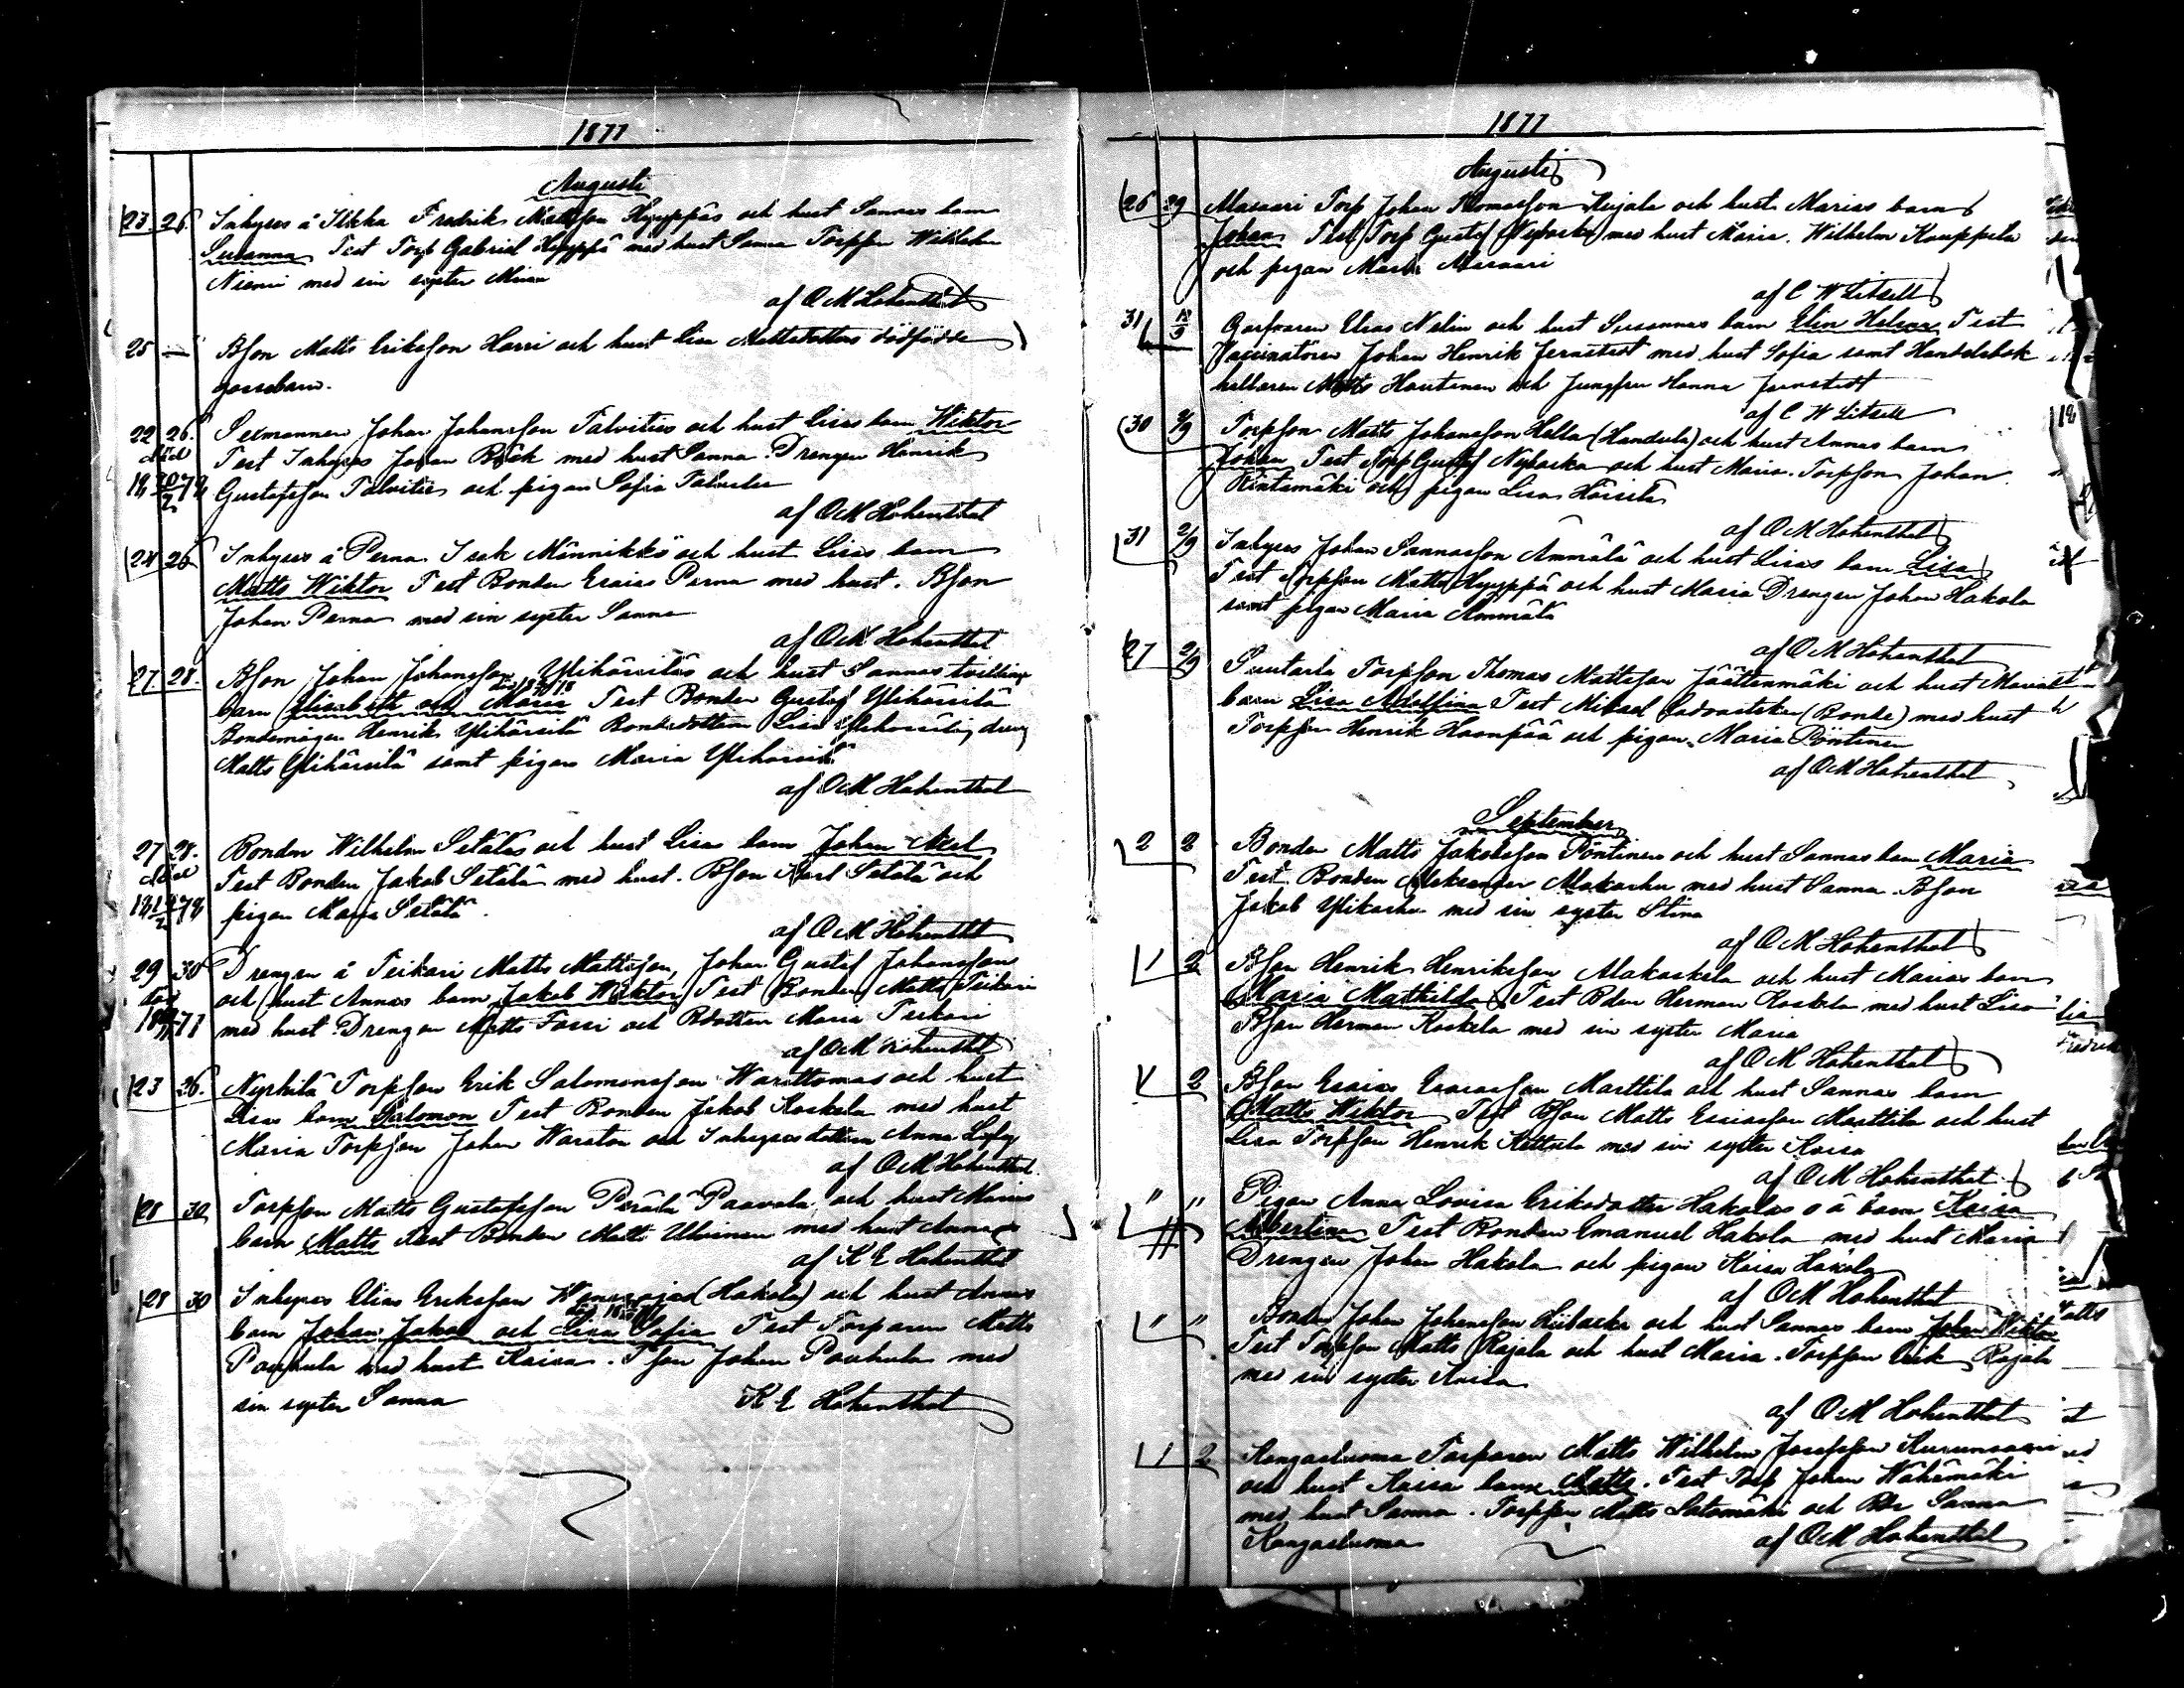 1877
Augusti
23. 26. Inhyses å Ilkka Fredrik Mattsson Hyyppäs och hust Sannas barn
Susanna Test Torp Gabriel Hyyppä med hust Sanna Torppson Wilhelm
Niemi med sin syster Mina
af O M Hohenthal
25 — Bson Matts Eriksson Harri och hust Lisa Mattsdotters dödfödde
gossebarn.
22 26. Sexmannen Johan Johansson Talvities och hust Lisas barn Wiktor
död Test Inhyses Johan Bäck med hust Sanna. Drengen Henrik
18 78 Gustafsson Talvitie och pigan Sofia
af O M Hohenthal
24 26 Inhyses å Perna Isak Männikkö och hust Lisas barn
Matts Wiktor Test Bonden Esaias Perna med hust. Bson
Johan Perna med sin syster Sanna
af O M Hohenthal
27 28. Bson Johan Johansson Ylihärsiläs och hust Sannas tvilling
barn Elisabeth och Maria Test Bonden Gustaf Ylihärsilä
Bondemågen Henrik Ylihärsilä Bondedottern Lisa Ylihärsilä, dreng
Matts Ylihärsilä samt pigan Maria Ylihärsilä
af O M Hohenthal
27 28. Bonden Wilhelm Setäläs och hust Lisas barn Johan Axel
död Test Bonden Jakob Setälä med hust. Bson Karl Setälä och
18 78 pigan Maria Setälä.
af O M Hohenthal
29 30 Drengen å Teikari Matts Mattsson, Johan Gustaf Johansson
död och hust Annas barn Jakob Wiktor Test Bonden Matts Teikari
med hust. Drengen Matts Fossi och Bdottern Maria Teikari
af O M Hohenthal
23 26. Nyrhilä Torpson Erik Salomonsson Warittomas och hust
Lisas barn Salomon Test Bonden Jakob Koskela med hust
Maria Torpson Johan Waraton och Inhysesdottern Anna
af O M Hohenthal
28 30 Torpson Matts Gustafsson Perälä Paavola och hust Marias
barn Matts Test Bonden Matts Ulvinen med hust Anna
af K E Hohenthal
28 30 Inhyses Elias Eriksson (Hakola) och hust Annas
barn Johan Jakob och Lisa Sofia Test Torparen Matts
Pouhula med hust Kaisa. Tson Johan Pouhula med
sin syster Sanna
K E Hohenthal
1877
Augusti
26 29 Masaari Torp Johan Thomasson Kujala och hust Marias barn
Johan Test Torp Gustaf Nybacka med hust Maria. Wilhelm Kauppila
och pigan Maria Masaari
af C W Litzell
31 Garfvaren Elias Nelin och hust Susannas barn Elin Helena Test
Vaccinatören Johan Henrik Jernstedt med hust Sofia samt Handelsbok
hållaren Matts Hautanen och Jungfrun Hanna Jernstedt
af C W Litzell
30 2/9 Torpson Matts Johansson Hella (Handula) och hust Annas barn
Johan Test Torp Gustaf Nybacka och hust Maria. Torpson Johan
Rintamäki och pigan Lisa Härsilä
af O M Hohenthal
31 2/9 Inhyses Johan Sannasson Ämmälä och hust Lisas barn Lisa
Test Torpson Matts Hyyppä och hust Maria Drengen Johan Hakola
samt pigan Maria Ämmälä
af O M Hohenthal
27 2/9 Suutarla Torpson Thomas Mattsson Jäätteenmäki och hust Marias
barn Lisa Adolfina Test Mikael (Bonde) med hust
Torpson Henrik Haanpää och pigan Maria Pöntinen
af O M Hohenthal
September
2 2 Bonden Matts Jakobsson Pöntinen och hust Sannas barn Maria
Test Bonden Aleksander Alakarhu med hust Sanna. Bson
Jakob Ylikarhu med sin syster Stina
af O M Hohenthal
1 2 Bson Henrik Henriksson Alakoskela och hust Marias barn
Maria Mathilda Test Bden Herman Koskela med hust Lisa
Bson Herman Koskela med sin syster Maria
af O M Hohenthal
1 2 Bson Esaias Esaiasson Marttila och hust Sannas barn
Matts Wiktor Test Bson Matts Esaiasson Marttila och hust
Lisa Torpson Henrik Kettula med sin syster Kaisa
af O M Hohenthal
" " Pigan Anna Lovisa Eriksdotter Hakolas o ä barn Kaisa
Albertina Test Bonden Emanuel Hakola med hust Maria
Drengen Johan Hakola och pigan Kaisa Hakola
af O M Hohenthal
" " Bonden Johan Johansson Liibacka och hust Sannas barn Johan Wiktor
Test Torpson Matts Rajala och hust Maria. Torpson Erik Rajala
med sin syster Kaisa
af O M Hohenthal
1 2 Kangasluoma Torparen Matts Wilhelm Josefsson Kurunsaari
och hust Kaisas barn Matts. Test Torp Johan Wähämäki
med hust Sanna. Torpson Matts Latomäki och Bdr Sanna
Kangasluoma
af O M Hohenthal